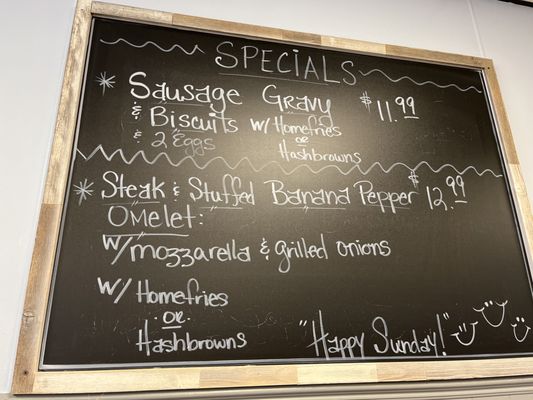 Specials
* Sausage Gravy $11.99
& Biscuits w/ Homefries
or
& 2 Eggs Hashbrowns
* Steak & Stuffed Banana Pepper $12.99
Omelet:
w/ mozzarella & grilled onions
w/ Homefries
or
Hashbrowns
"Happy Sunday!"